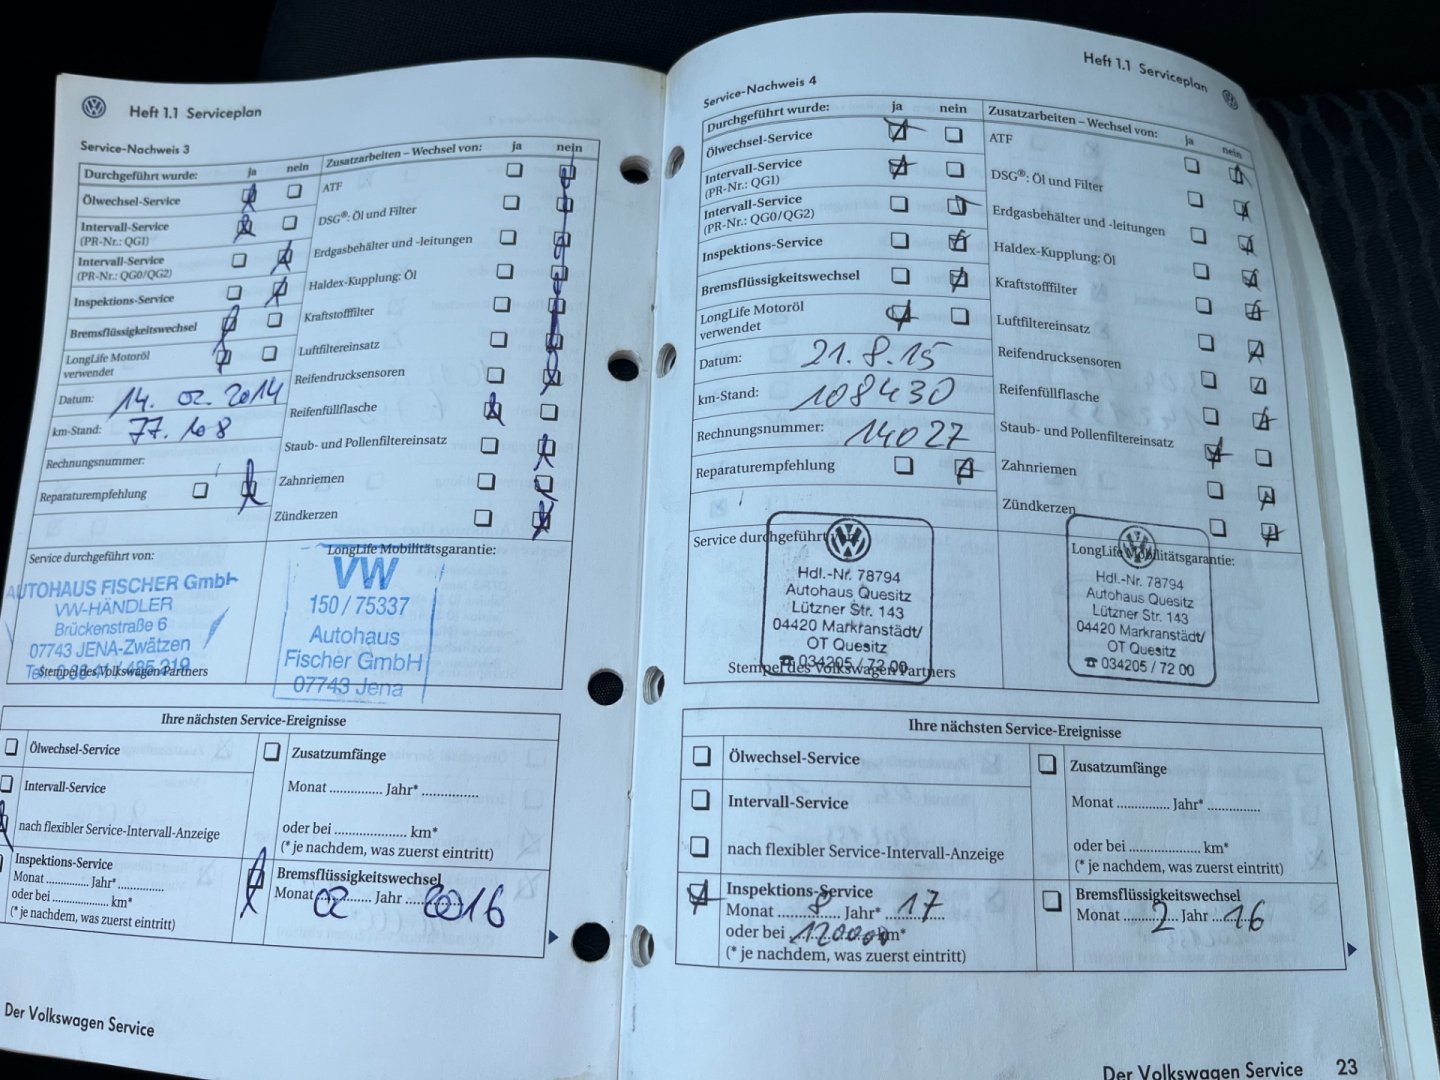 Heft 1.1 Serviceplan
Service-Nachweis 3
Durchgeführt wurde: ja nein
Ölwechsel-Service
Intervall-Service
(PR-Nr.: QG1)
Intervall-Service
(PR-Nr.: QG0/QG2)
Inspektions-Service
Bremsflüssigkeitswechsel
LongLife Motoröl
verwendet
Datum: 14. 02. 2014
km-Stand: 77. 108
Rechnungsnummer:
Reparaturempfehlung
Zusatzarbeiten – Wechsel von: ja nein
ATF
DSG®: Öl und Filter
Erdgasbehälter und -leitungen
Haldex-Kupplung: Öl
Kraftstofffilter
Luftfiltereinsatz
Reifendrucksensoren
Reifenfüllflasche
Staub- und Pollenfiltereinsatz
Zahnriemen
Zündkerzen
Service durchgeführt von:
AUTOHAUS FISCHER GmbH
VW-HÄNDLER
Brückenstraße 6
07743 JENA-Zwätzen
Stempel des Volkswagen Partners
LongLife Mobilitätsgarantie:
VW
150 / 75337
Autohaus
Fischer GmbH
07743 Jena
Ihre nächsten Service-Ereignisse
Ölwechsel-Service
Intervall-Service
nach flexibler Service-Intervall-Anzeige
Inspektions-Service
Monat ............. Jahr* ..............
oder bei .................... km*
(* je nachdem, was zuerst eintritt)
Zusatzumfänge
Monat .............. Jahr* ...............
oder bei ................... km*
(* je nachdem, was zuerst eintritt)
Bremsflüssigkeitswechsel
Monat 02 Jahr 2016
Der Volkswagen Service
Heft 1.1 Serviceplan
Service-Nachweis 4
Durchgeführt wurde: ja nein
Ölwechsel-Service
Intervall-Service
(PR-Nr.: QG1)
Intervall-Service
(PR-Nr.: QG0/QG2)
Inspektions-Service
Bremsflüssigkeitswechsel
LongLife Motoröl
verwendet
Datum: 21. 8. 15
km-Stand: 108430
Rechnungsnummer: 14027
Reparaturempfehlung
Zusatzarbeiten – Wechsel von: ja nein
ATF
DSG®: Öl und Filter
Erdgasbehälter und -leitungen
Haldex-Kupplung: Öl
Kraftstofffilter
Luftfiltereinsatz
Reifendrucksensoren
Reifenfüllflasche
Staub- und Pollenfiltereinsatz
Zahnriemen
Zündkerzen
Service durchgeführt von:
Hdl.-Nr. 78794
Autohaus Quesitz
Lützner Str. 143
04420 Markranstädt/
OT Quesitz
☎ 034205 / 72 00
Stempel des Volkswagen Partners
LongLife Mobilitätsgarantie:
Hdl.-Nr. 78794
Autohaus Quesitz
Lützner Str. 143
04420 Markranstädt/
OT Quesitz
☎ 034205 / 72 00
Ihre nächsten Service-Ereignisse
Ölwechsel-Service
Intervall-Service
nach flexibler Service-Intervall-Anzeige
Inspektions-Service
Monat 8 Jahr* 17
oder bei 120000 km*
(* je nachdem, was zuerst eintritt)
Zusatzumfänge
Monat .............. Jahr* ..............
oder bei ................... km*
(* je nachdem, was zuerst eintritt)
Bremsflüssigkeitswechsel
Monat 2 Jahr 16
Der Volkswagen Service 23